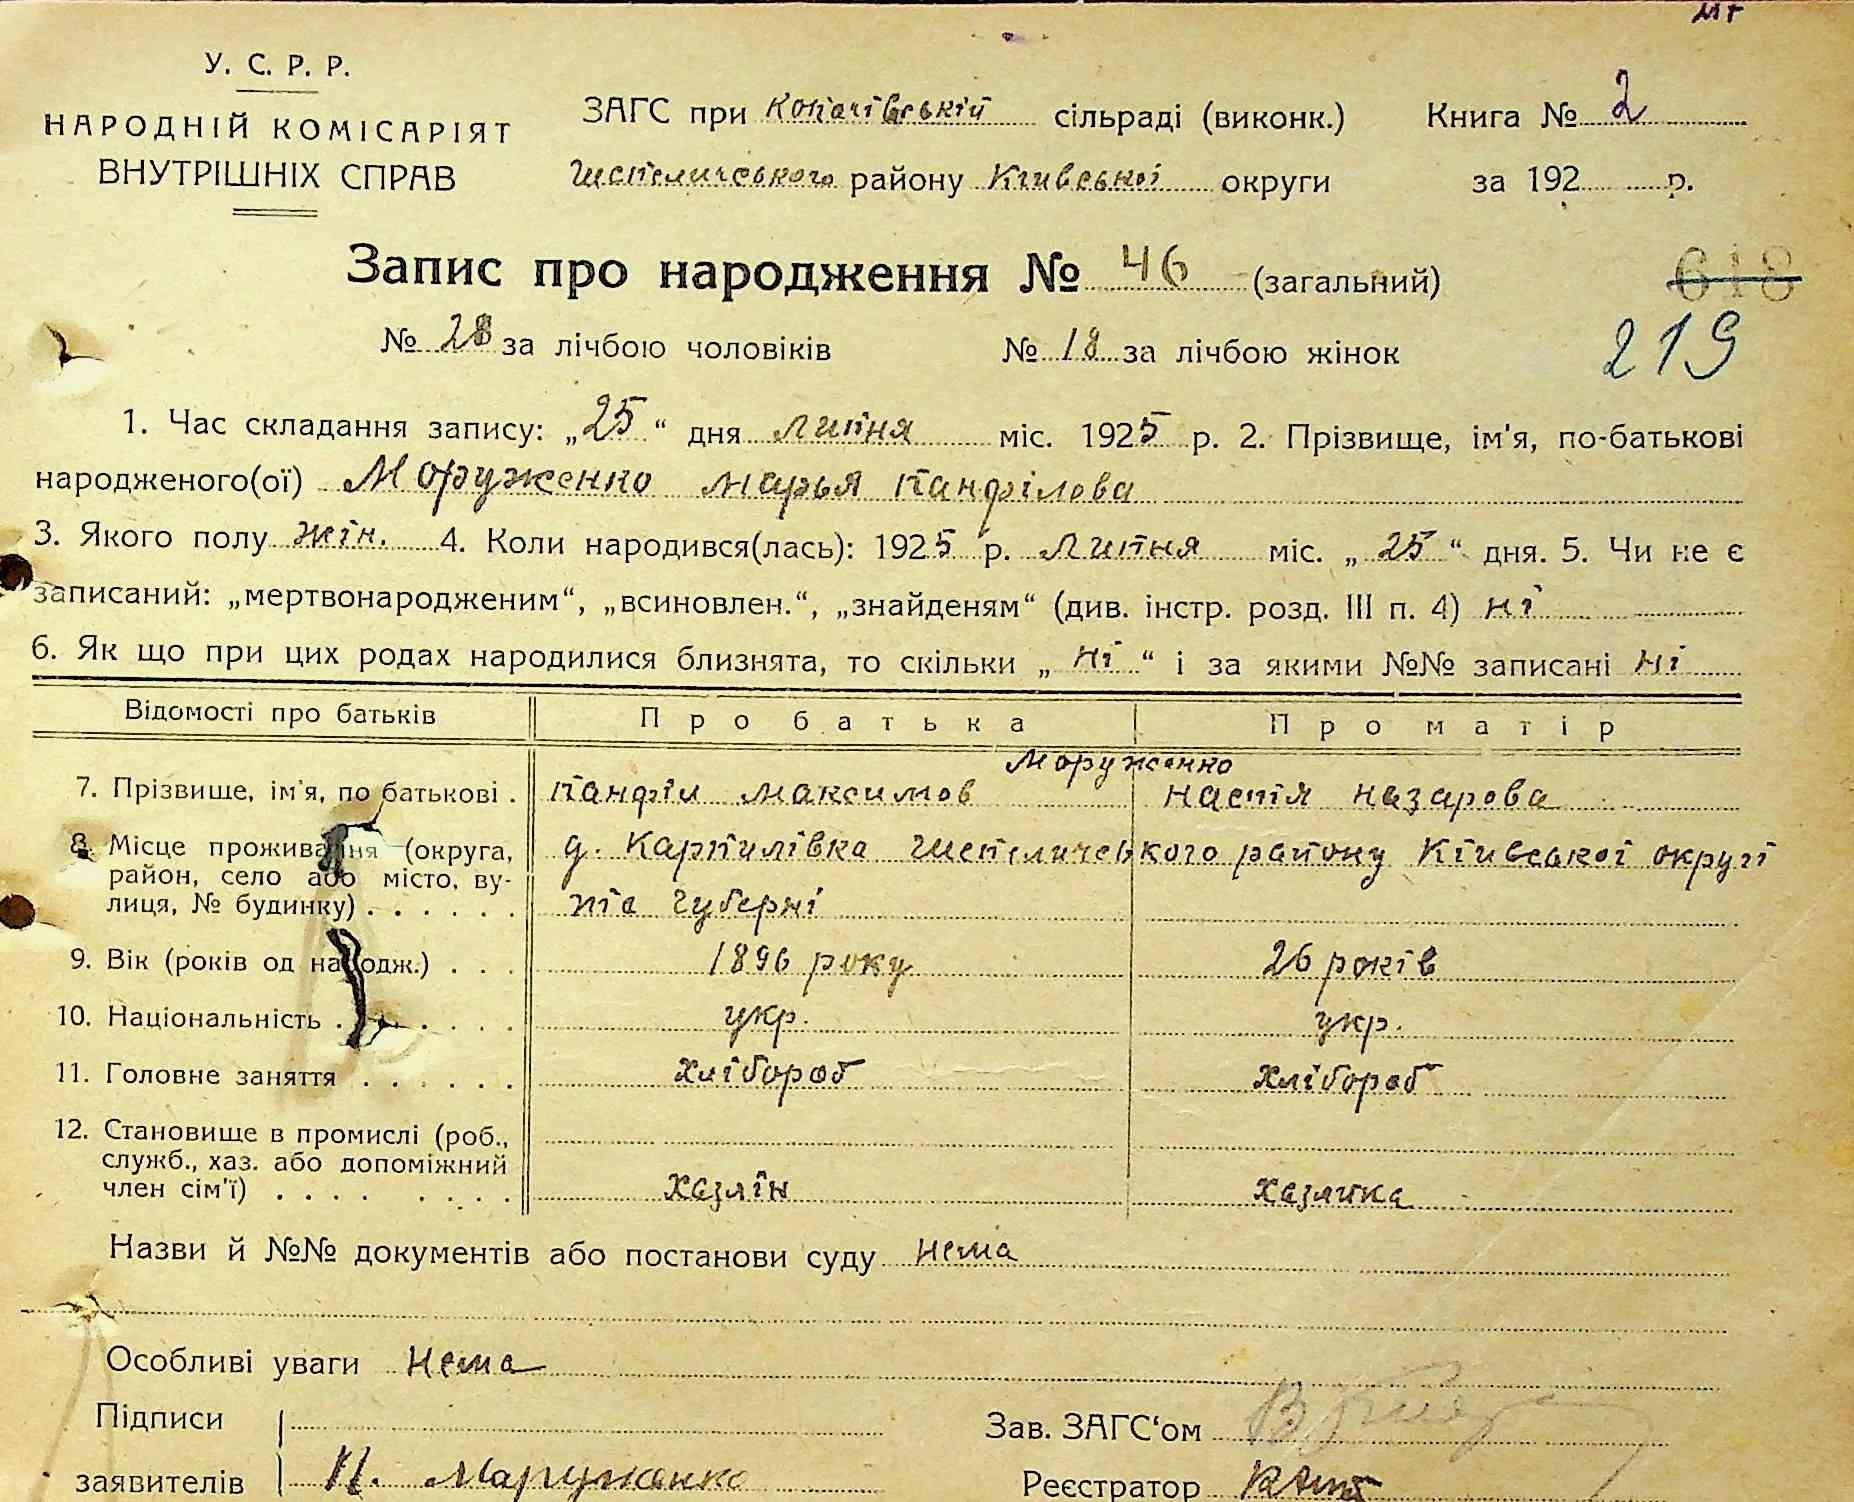 У. С. Р. Р.
НАРОДНІЙ КОМІСАРІЯТ
ВНУТРІШНІХ СПРАВ
ЗАГС при Копачівській сільраді (виконк.) Книга № 2
Шепеличського району Київської округи за 192 р.
Запис про народження № 46 (загальний)
618
№ 28 за лічбою чоловіків № 18 за лічбою жінок
219
1. Час складання запису: „25“ дня липня міс. 1925 р. 2. Прізвище, ім'я, по-батькові
народженого(ої) Моруженко Марья Панфілова
3. Якого полу жін. 4. Коли народився(лась): 1925 р. Липня міс. „25“ дня. 5. Чи не є
записаний: „мертвонародженим“, „всиновлен.“, „знайденям“ (див. інстр. розд. III п. 4) ні
6. Як що при цих родах народилися близнята, то скільки „ні“ і за якими №№ записані ні
Відомості про батьків Про батька Про матір
Моруженко
7. Прізвище, ім'я, по батькові . Панфіл Максимов Настя Назарова
8. Місце проживання (округа, д. Карпилівка Шепеличського району Київської округи
район, село або місто, ву-
лиця, № будинку) . . . . . . губерні
9. Вік (років од народж.) . . . 1896 року 26 років
10. Національність . . . . . . укр. укр.
11. Головне заняття . . . . . . хлібороб хлібороб
12. Становище в промислі (роб.,
служб., хаз. або допоміжний
член сім'ї) . . . . . . . . хазяїн хазяика
Назви й №№ документів або постанови суду нема
Особливі уваги нема
Підписи Зав. ЗАГС‘ом
заявителів П. Маруженко Реєстратор